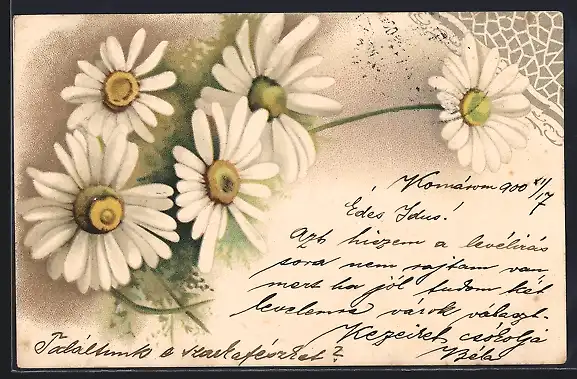 Komárom 900 XI/17
Édes Idus!
Azt hiszem a levélirás
sora nem rajtam van
mert ha jól tudom két
levelemre várok választ.
Kezeidet csókolja
Béla
Találtunk e szarkafészket?